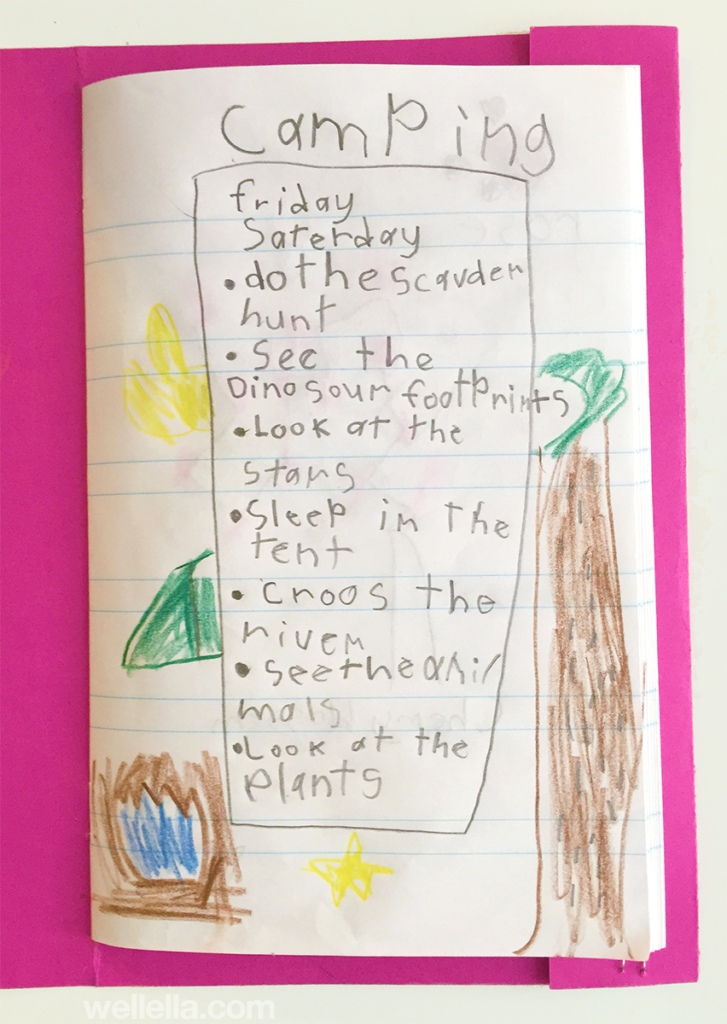 Camping
friday
Saterday
• do the scavder
hunt
• See the
Dinosour footprints
• Look at the
stars
• Sleep in the
tent
• croos the
river
• see the ani/
mals
• Look at the
plants
wellella.com